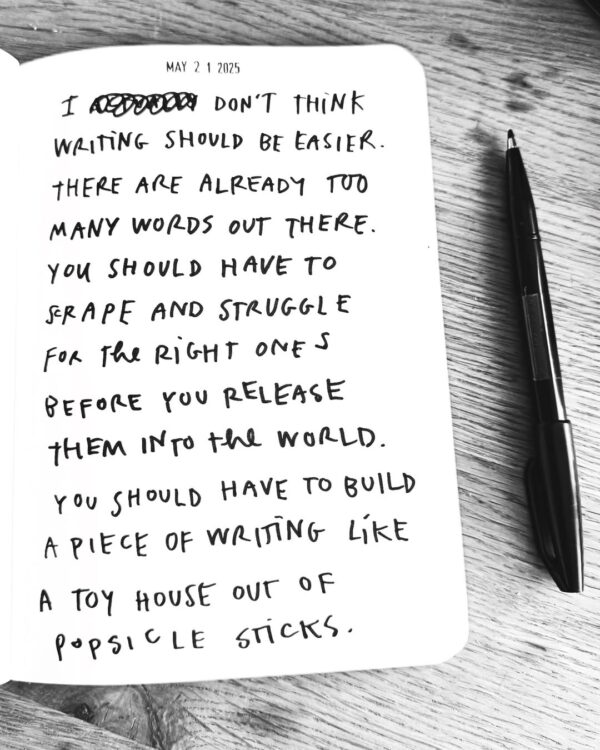 MAY 21 2025
I DON'T THINK
WRITING SHOULD BE EASIER.
THERE ARE ALREADY TOO
MANY WORDS OUT THERE.
YOU SHOULD HAVE TO
SCRAPE AND STRUGGLE
FOR the RIGHT ONES
BEFORE YOU RELEASE
THEM INTO the WORLD.
YOU SHOULD HAVE TO BUILD
A PIECE OF WRITING LIKE
A TOY HOUSE OUT OF
POPSICLE STICKS.